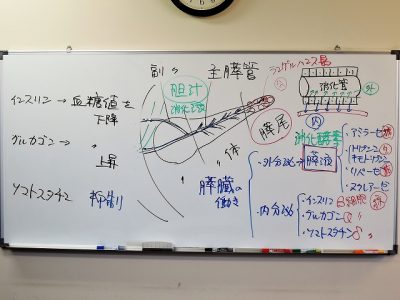 インスリン → 血糖値を
下降
グルカゴン → 〃
上昇
ソマトスタチン 抑制
副〃
主膵管
胆汁
消化酵素
膵尾
〃体
ランゲルハンス島
消化管
外
内
膵臓の
働き
消化酵素
・外分泌 → 膵液
・アミラーゼ
・トリプシン
キモトリプシン
・リパーゼ
・ヌクレアーゼ
・内分泌
・インスリン β細胞
・グルカゴン α 〃
・ソマトスタチン δ 〃